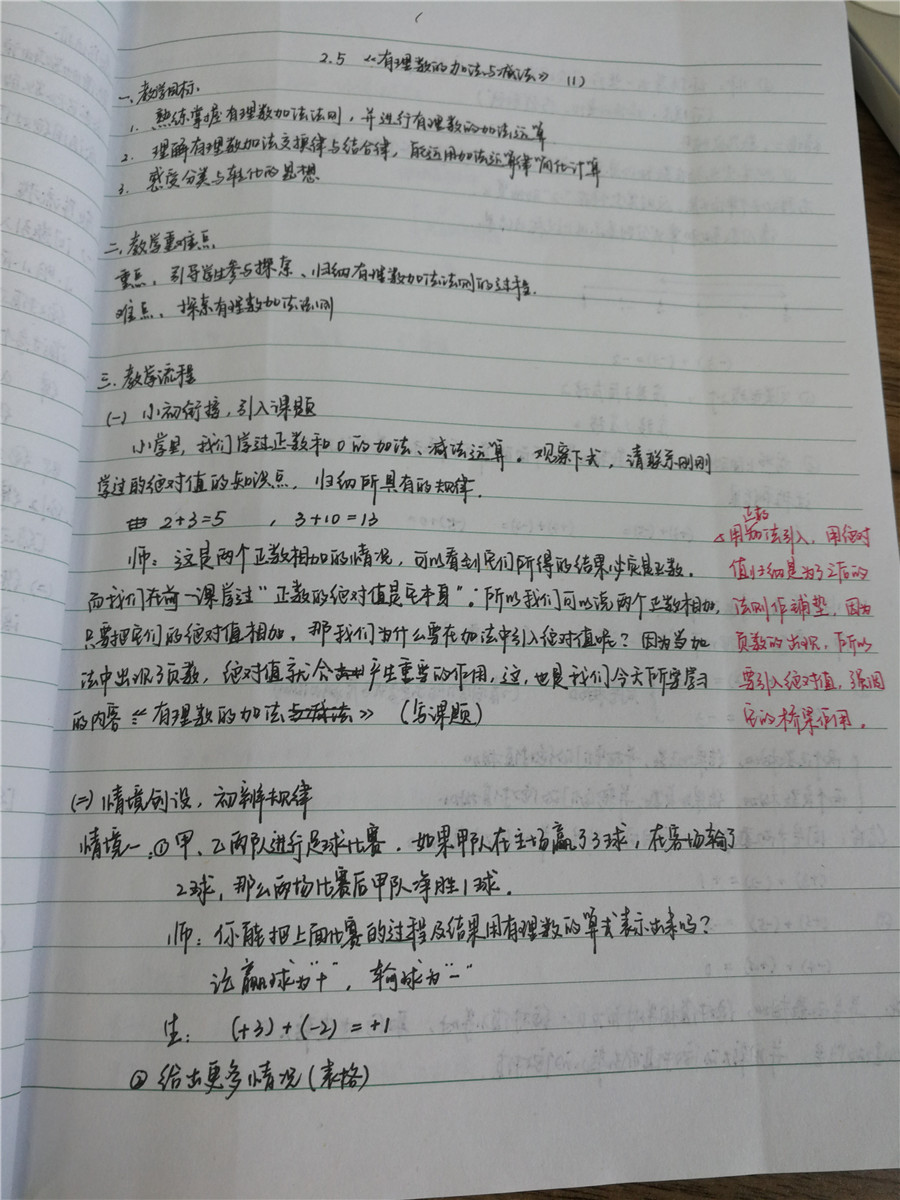 2.5 《有理数的加法与减法》 (1)
一、教学目标:
1. 熟练掌握有理数加法法则,并进行有理数的加法运算
2. 理解有理数加法交换律与结合律,能运用加法运算律简化计算
3. 感受分类与转化的思想
二、教学重难点
重点、引导学生参与探索、归纳有理数加法法则的过程.
难点、探索有理数加法法则
三、教学流程
(一) 小初衔接,引入课题
小学里,我们学过正数和0的加法、减法运算。观察下式,请联系刚刚
学过的绝对值的知识点,归纳所具有的规律.
2+3=5 , 3+10=13
师:这是两个正数相加的情况,可以看到它们所得的结果必定是正数.
而我们在前一课学过“正数的绝对值是它本身”.所以我们可以说两个正数相加,
只要把它们的绝对值相加,那我们为什么要在加法中引入绝对值呢?因为当加
法中出现了负数,绝对值就会产生重要的作用,这,也是我们今天所要学习
的内容《有理数的加法与减法》 (写课题)
正数
△用加法引入,用绝对
值归纳是为了之后的
法则作铺垫,因为
负数的出现,所以
要引入绝对值,强调
它的桥梁作用.
(二) 情境创设,初辨规律
情境一:① 甲、乙两队进行足球比赛.如果甲队在主场赢了3球,在客场输了
2球,那么两场比赛后甲队净胜1球.
师:你能把上面比赛的过程及结果用有理数的算式表示出来吗?
记赢球为“+”,输球为“-”
生: (+3)+(-2)=+1
② 给出更多情况(表格)